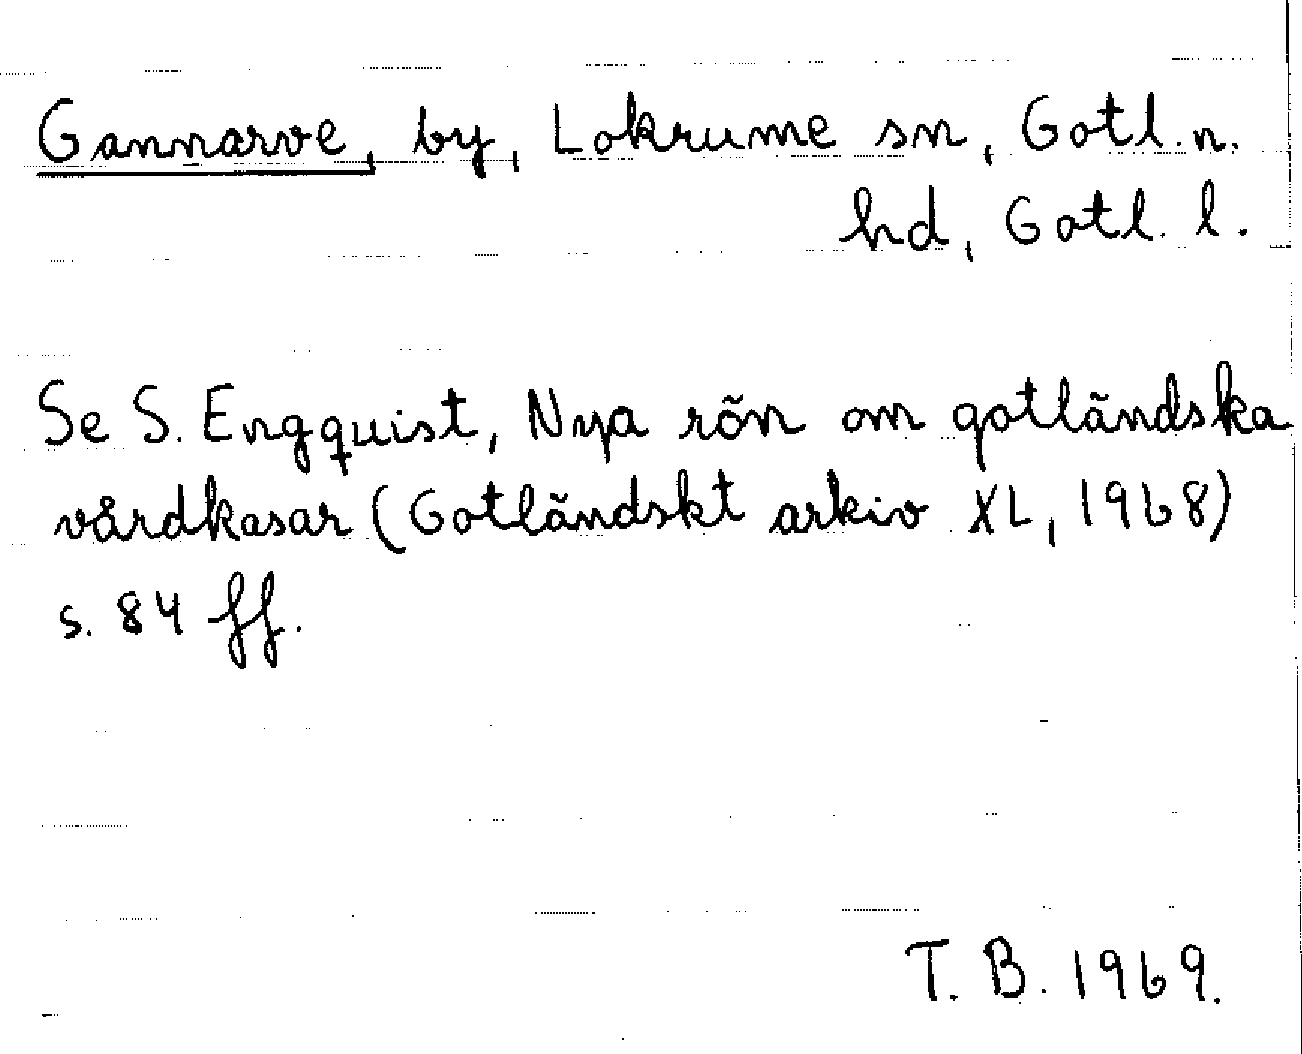 Gannarve, by, Lokrume sn, Gotl. n.
hd, Gotl. l.
Se S. Engquist, Nya rön om gotländska
vårdkasar (Gotländskt arkiv XL, 1968)
s. 84 ff.
T. B. 1969.